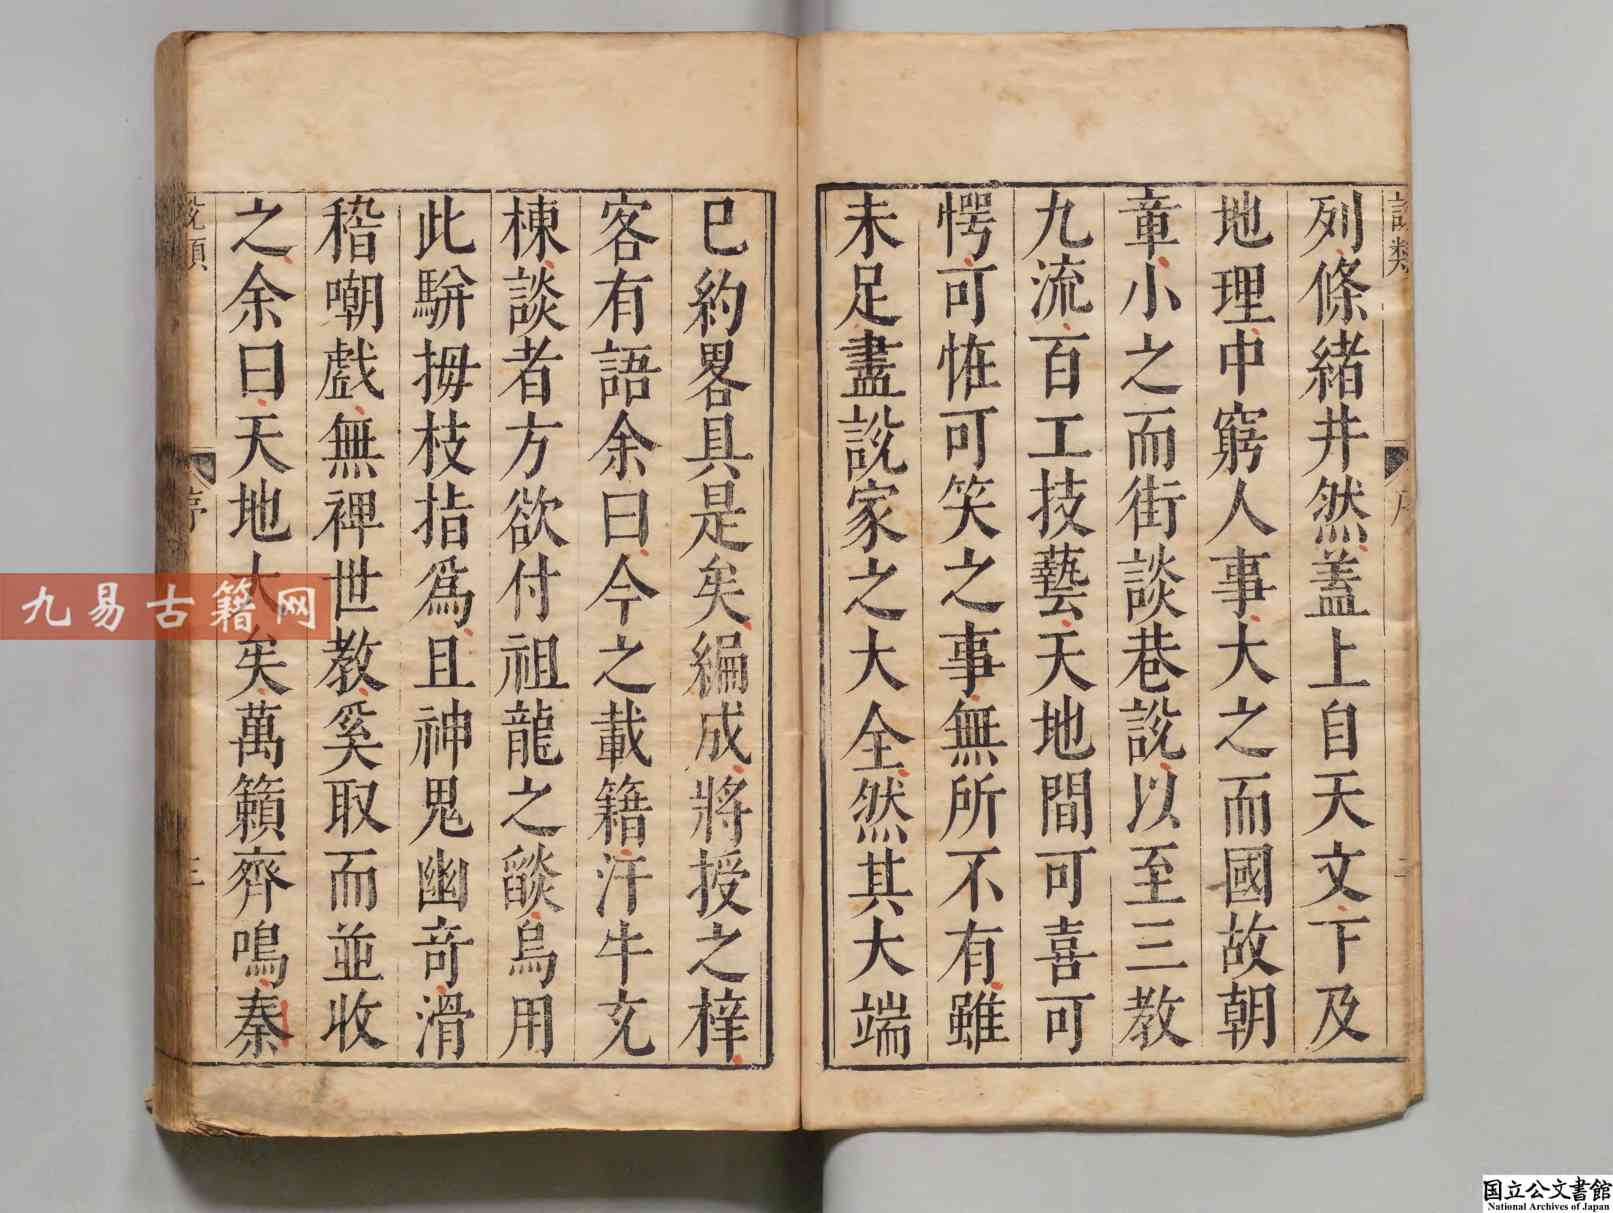 說類
列條緒井然葢上自天文下及
地理中窮人事大之而國故朝
章小之而街談巷說以至三教
九流百工技藝天地間可喜可
愕可恠可笑之事無所不有雖
未足盡說家之大全然其大端
已約畧具是矣編成將授之梓
客有語余曰今之載籍汗牛充
棟談者方欲付祖龍之燄烏用
此駢拇枝指爲且神鬼幽竒滑
稽嘲戲無裨世教奚取而並收
之余曰天地大矣萬籟齊鳴秦
說類
序
三
九易古籍网
国立公文書館
National Archives of Japan